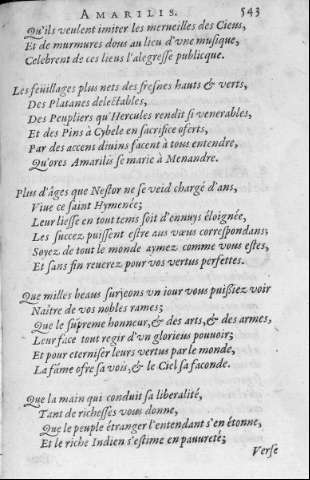 AMARILIS. 543
Qu'ils veulent imiter les merueilles des Cieus,
Et de murmures dous au lieu d'vne musique,
Celebrent de ces lieus l'alegresse publicque.
Les feüillages plus nets des fresnes hauts & verts,
Des Platanes delectables,
Des Peupliers qu'Hercules rendit si venerables,
Et des Pins à Cybele en sacrifice oferts,
Par des accens diuins facent à tous entendre,
Qu'ores Amarilis se marie à Menandre.
Plus d'âges que Nestor ne se veid chargé d'ans,
Viue ce saint Hymenée;
Leur liesse en tout tems soit d'ennuys éloignée,
Les succez puissent estre aus vœus correspondans;
Soyez de tout le monde aymez comme vous estes,
Et sans fin reuerez pour vos vertus perfettes.
Que milles beaus surjeons vn iour vous puißiez voir
Naitre de vos nobles rames;
Que le supreme honneur, & des arts, & des armes,
Leur face tout regir d'vn glorieus pouuoir;
Et pour eterniser leurs vertus par le monde,
La fame ofre sa vois, & le Ciel sa faconde.
Que la main qui conduit sa liberalité,
Tant de richesses vous donne,
Que le peuple étranger l'entendant s'en étonne,
Et le riche Indien s'estime en pauureté;
Verse